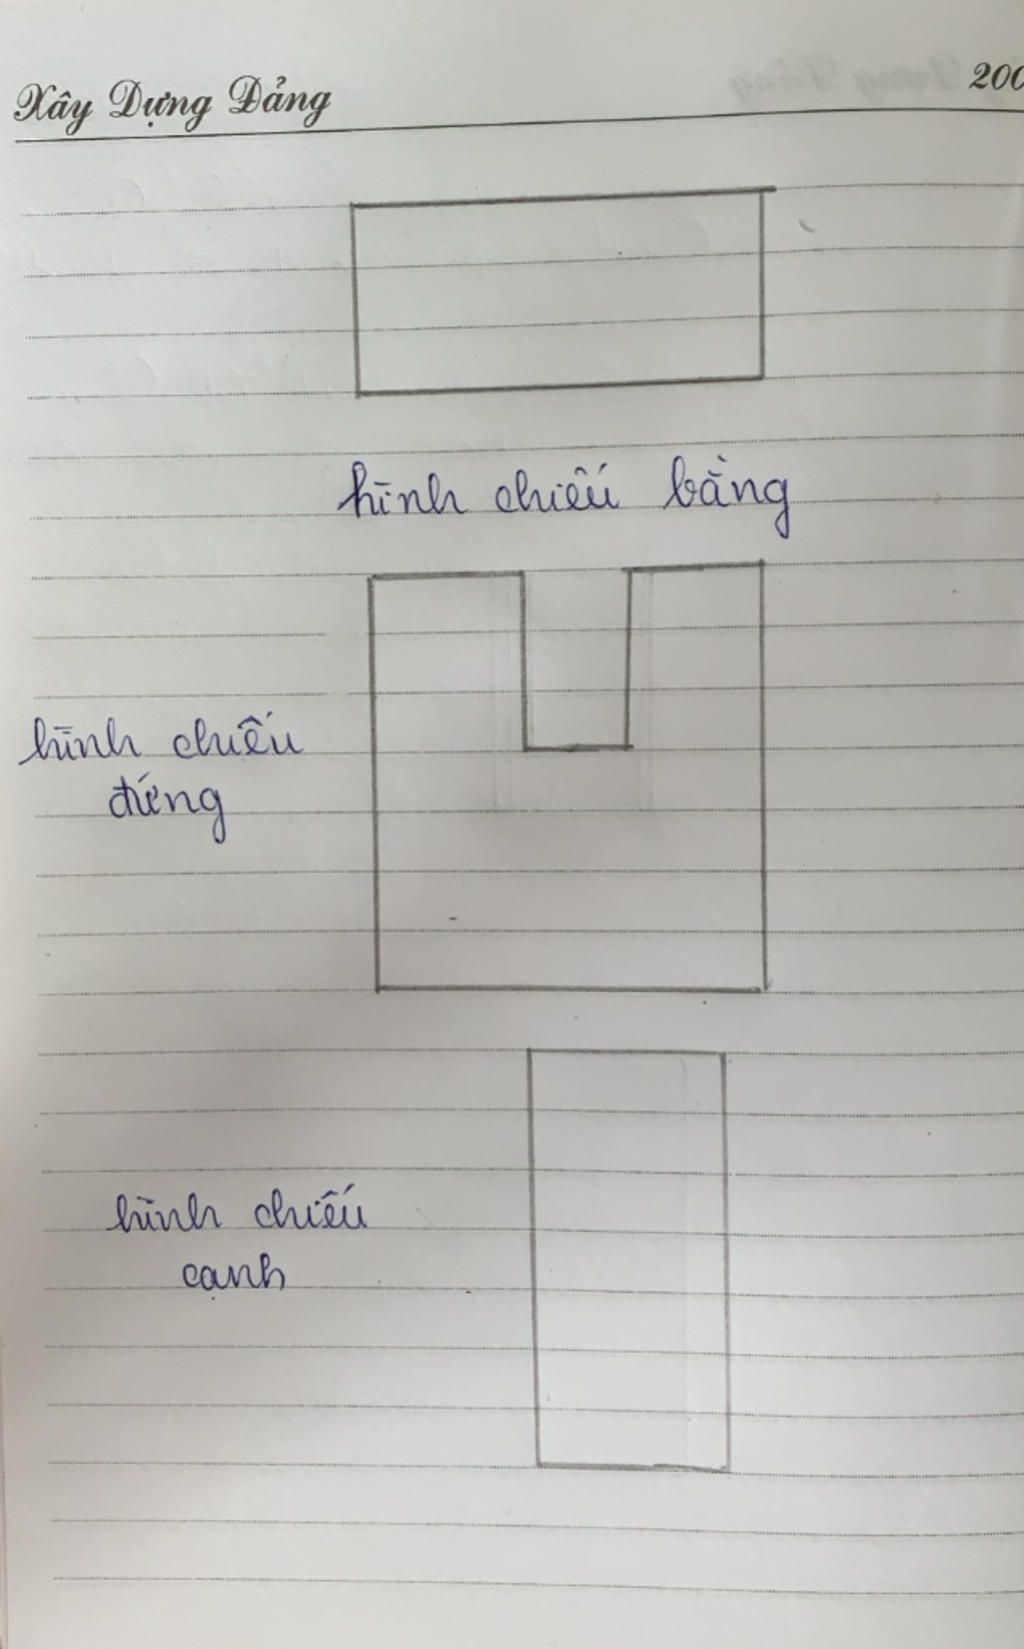 Xây Dựng Đảng
200
hình chiếu bằng
hình chiếu
đứng
hình chiếu
cạnh